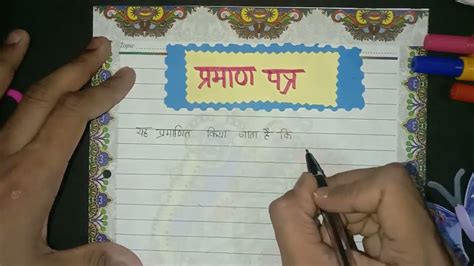 Topic
प्रमाण पत्र
यह प्रमाणित किया जाता है कि